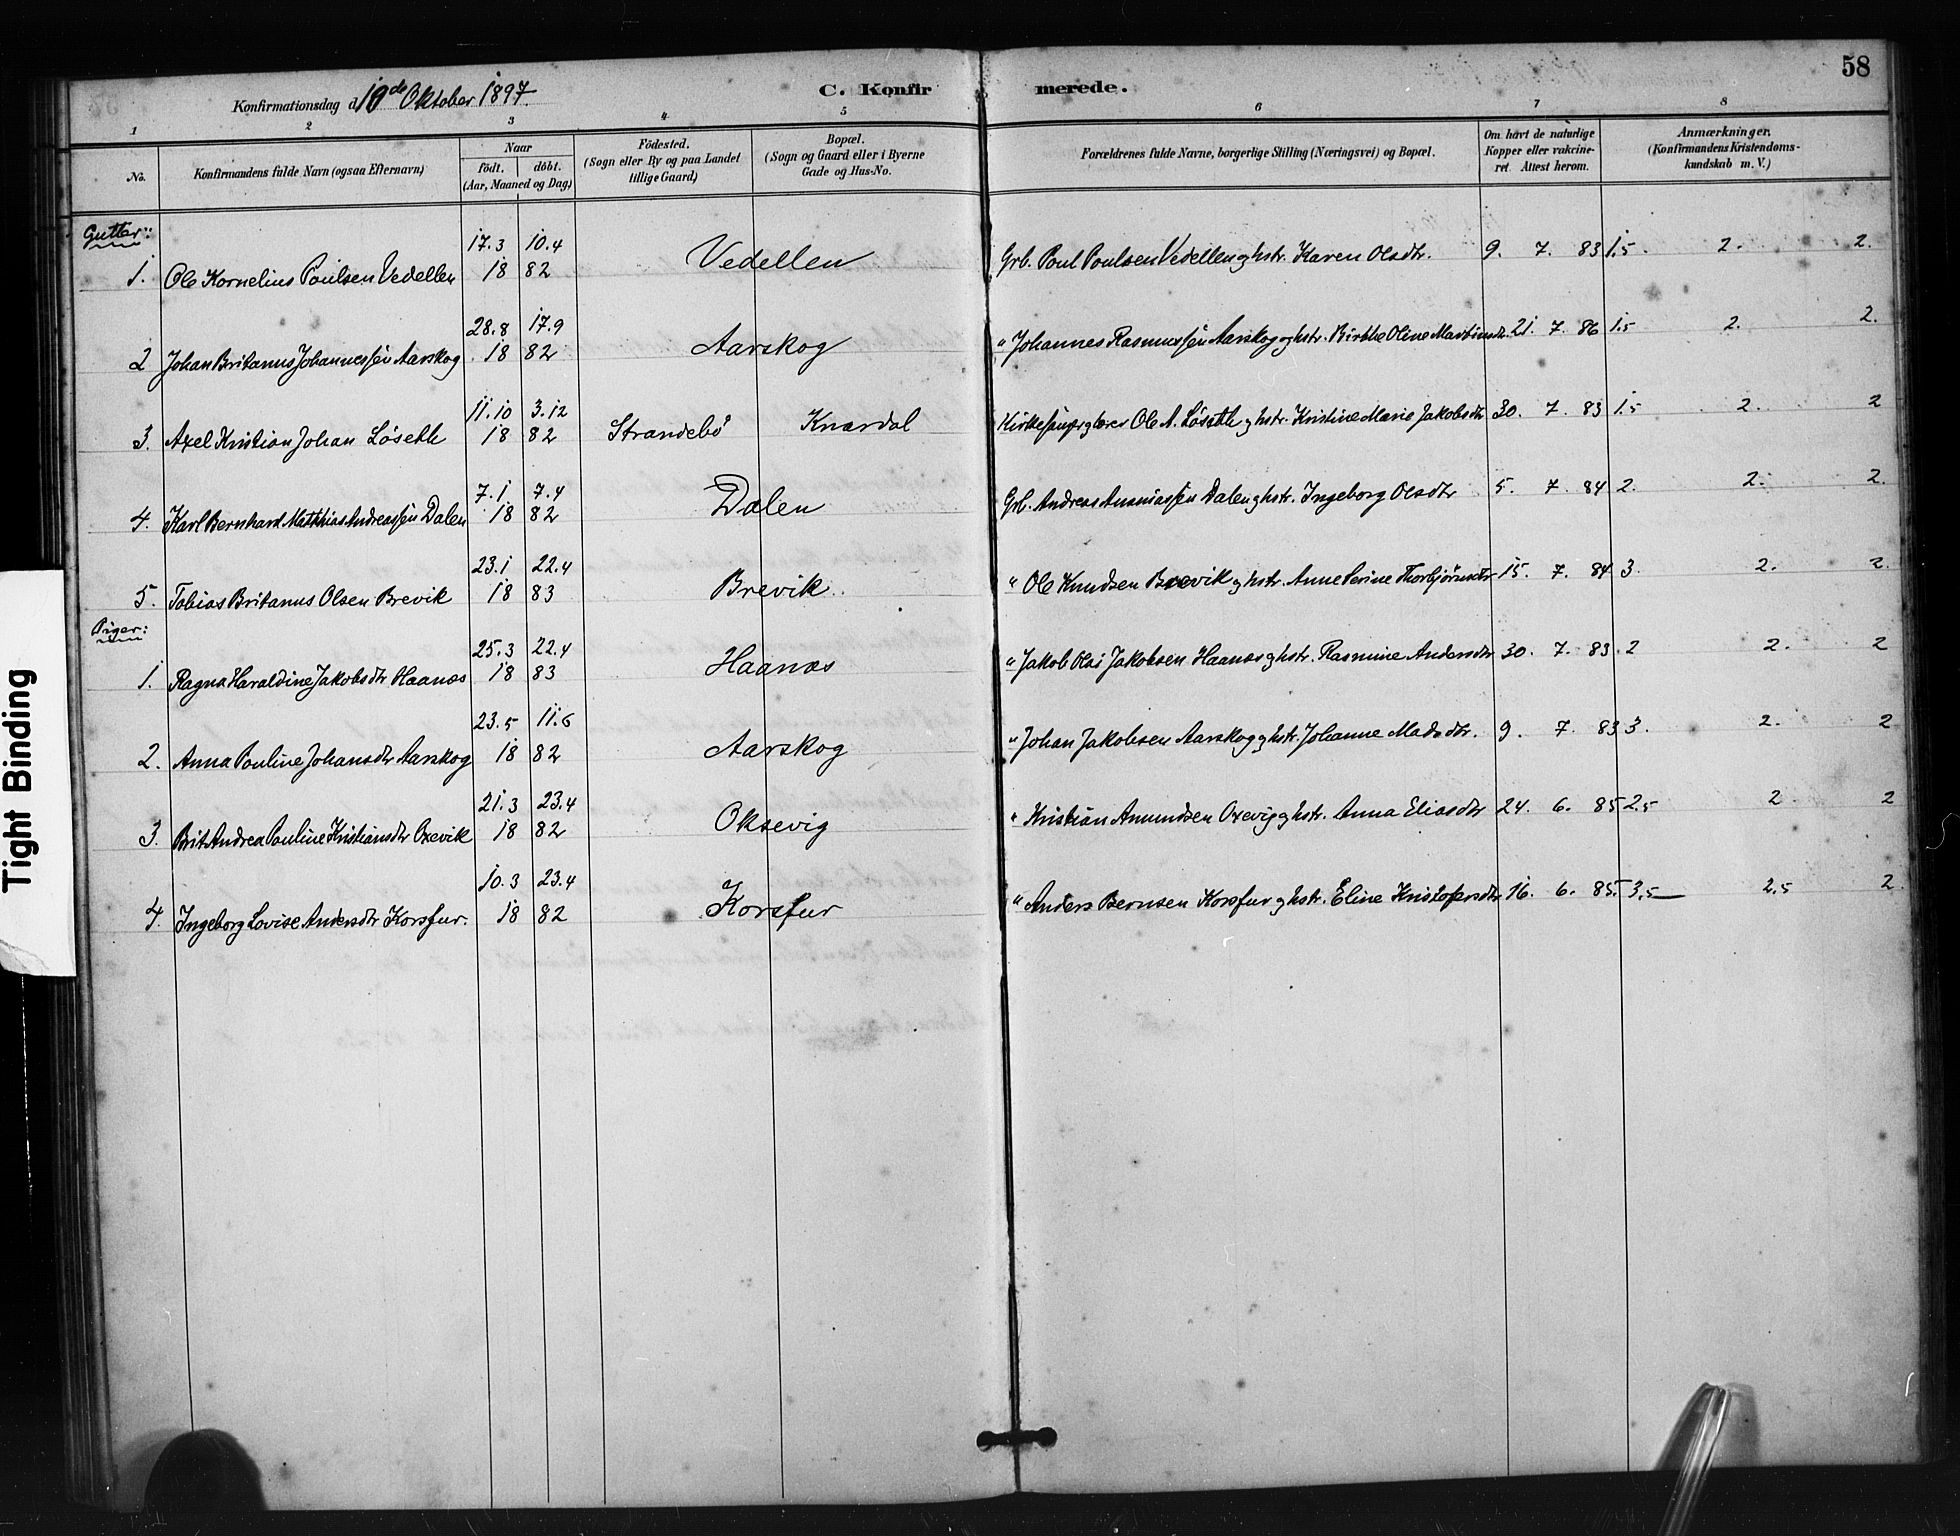 58
Konfirmationsdag d. 10de Oktober 1897.
C. Konfirmerede.
1 2 3 4 5 6 7 8
No.
Konfirmandens fulde Navn (ogsaa Efternavn)
Naar
födt. döbt.
(Aar, Maaned og Dag)
Födested.
(Sogn eller By og paa Landet
tillige Gaard)
Bopæl.
(Sogn og Gaard eller i Byerne
Gade og Hus-No.
Forældrenes fulde Navne, borgerlige Stilling (Næringsvei) og Bopæl.
Om havt de naturlige
Kopper eller vakcine-
ret Attest herom.
Anmærkninger.
(Konfirmandens Kristendoms-
kundskab m. V.)
Gutter:
17.3 10.4
1. Ole Kornelius Poulsen Vedellen 18 82 Vedellen Grb. Poul Poulsen Vedellen og hstr. Karen Olsdtr. 9. 7. 83 1.5 2. 2.
28.8 17.9
2 Johan Britanus Johannessen Aarskog 18 82 Aarskog " Johannes Rasmussen Aarskog og hstr. Birthe Oline Martinsdtr 21. 7. 86 1.5 2. 2.
11.10 3.12
3. Axel Kristian Johan Löseth 18 82 Strandebö Knardal Kirkesanger og lærer Ole A. Löseth og hstr. Kristine Marie Jakobsdtr 30. 7. 83 1.5 2. 2
7.1 7.4
4. Karl Bernhard Matthias Andreassen Dalen 18 82 Dalen Grb. Andreas Ananiassen Dalen og hstr. Ingeborg Olsdtr 5. 7. 84 2. 2. 2.
23.1 22.4
5. Tobias Britanus Olsen Brevik 18 83 Brevik " Ole Knudsen Brevik og hstr. Anne Serine Thorbjörnsdtr 15. 7. 84 3. 2. 2.
Piger:
25.3 22.4
1. Ragna Haraldine Jakobsdtr Haanæs 18 83 Haanæs " Jakob Olai Jakobsen Haanæs og hstr. Rasmine Andersdtr 30. 7. 83. 2 2. 2
23.5 11.6
2. Anna Pouline Johansdtr Aarskog 18 82 Aarskog " Johan Jakobsen Aarskog og hstr. Johanne Madsdtr. 9. 7. 83 3. 2. 2
21.3 23.4
3. Brit Andrea Pauline Kristiansdtr Oxevik 18 82 Oksevig " Kristian Amundsen Oxevig og hstr. Anna Eliasdtr 24. 6. 85 2.5 2 2
10.3 23.4
4. Ingeborg Lovise Andersdtr Korsfur. 18 82 Korsfur " Anders Bernsen Korsfur og hstr. Eline Kristofersdtr 16. 6. 85. 3.5 2.5 2.
Tight Binding